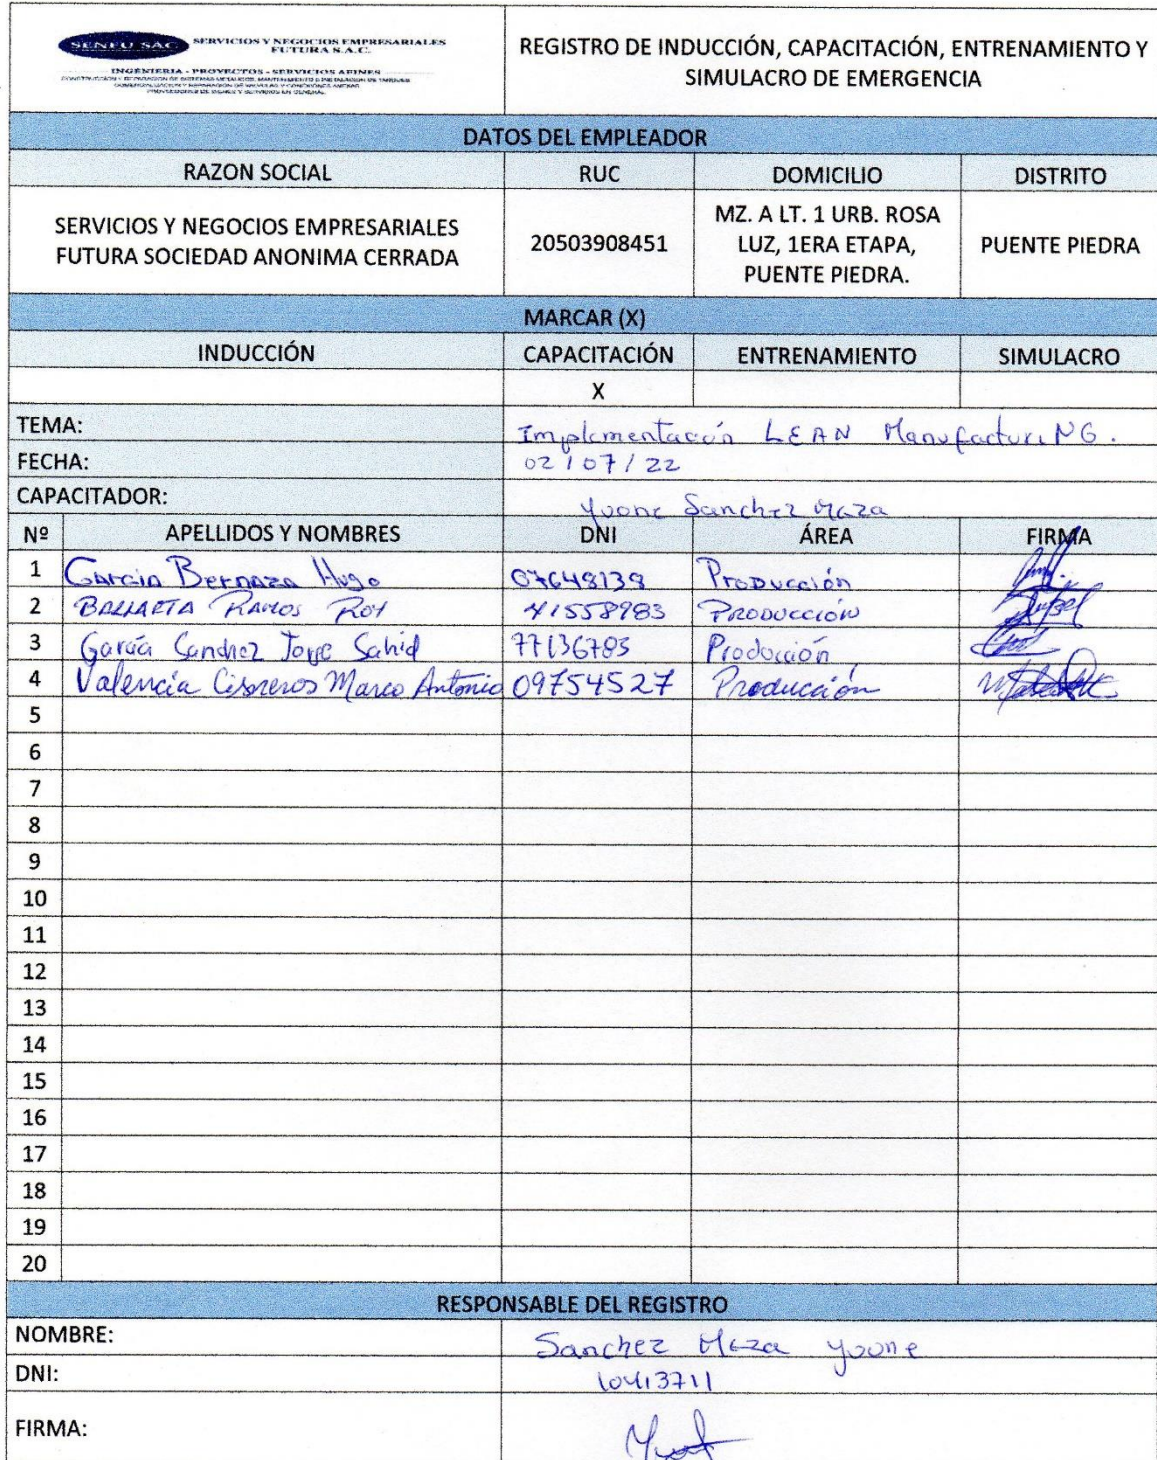 SENFU SAC SERVICIOS Y NEGOCIOS EMPRESARIALES
FUTURA S.A.C.
INGENIERIA - PROYECTOS - SERVICIOS AFINES
REGISTRO DE INDUCCIÓN, CAPACITACIÓN, ENTRENAMIENTO Y
SIMULACRO DE EMERGENCIA
DATOS DEL EMPLEADOR
RAZON SOCIAL RUC DOMICILIO DISTRITO
SERVICIOS Y NEGOCIOS EMPRESARIALES
FUTURA SOCIEDAD ANONIMA CERRADA
20503908451
MZ. A LT. 1 URB. ROSA
LUZ, 1ERA ETAPA,
PUENTE PIEDRA.
PUENTE PIEDRA
MARCAR (X)
INDUCCIÓN CAPACITACIÓN ENTRENAMIENTO SIMULACRO
X
TEMA: Implementación LEAN ManufacturiNG.
FECHA: 02/07/22
CAPACITADOR: Yvone Sanchez Meza
Nº APELLIDOS Y NOMBRES DNI ÁREA FIRMA
1 García Bernaza Hugo 07648138 Producción
2 Ramos Roy 41558983 PRODUCCIÓN
3 García Sanchez Jorge Sahid 77136785 Producción
4 Valencia Cisneros Marco Antonio 09754527 Producción
5
6
7
8
9
10
11
12
13
14
15
16
17
18
19
20
RESPONSABLE DEL REGISTRO
NOMBRE: Sanchez Meza Yvone
DNI: 10413711
FIRMA: